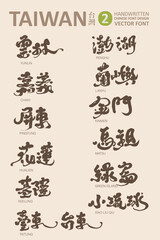 TAIWAN 台灣 2
HANDWRITTEN
CHINESE FONT DESIGN
VECTOR FONT
雲林
YUNLIN
嘉義
CHIAYI
屏東
PINGTUNG
花蓮
HUALIEN
基隆
KEELUNG
臺東 台東
TAITUNG
澎湖
PENGHU
蘭嶼
LANYU
金門
KINMEN
馬祖
MATSU
綠島
GREEN ISLAND
小琉球